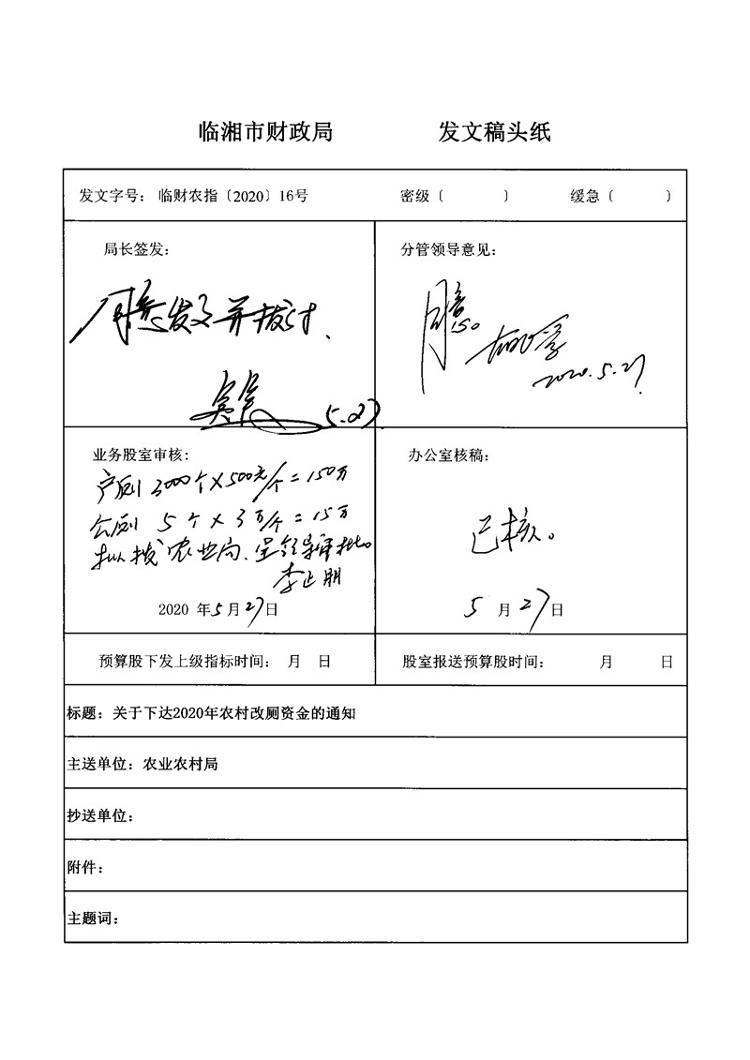 临湘市财政局 发文稿头纸
发文字号： 临财农指〔2020〕16号 密级〔 〕 缓急〔 〕
局长签发：
同意发文并拨付、
5.27
分管领导意见：
同意。
2020.5.27
业务股室审核：
户厕 3000个×500元/个=150万
公厕 5个×3万/个=15万
拟拨农业局、呈领导审批。
李正明
2020 年5月27日
办公室核稿：
已核。
5 月 27 日
预算股下发上级指标时间： 月 日
股室报送预算股时间： 月 日
标题：关于下达2020年农村改厕资金的通知
主送单位：农业农村局
抄送单位：
附件：
主题词：